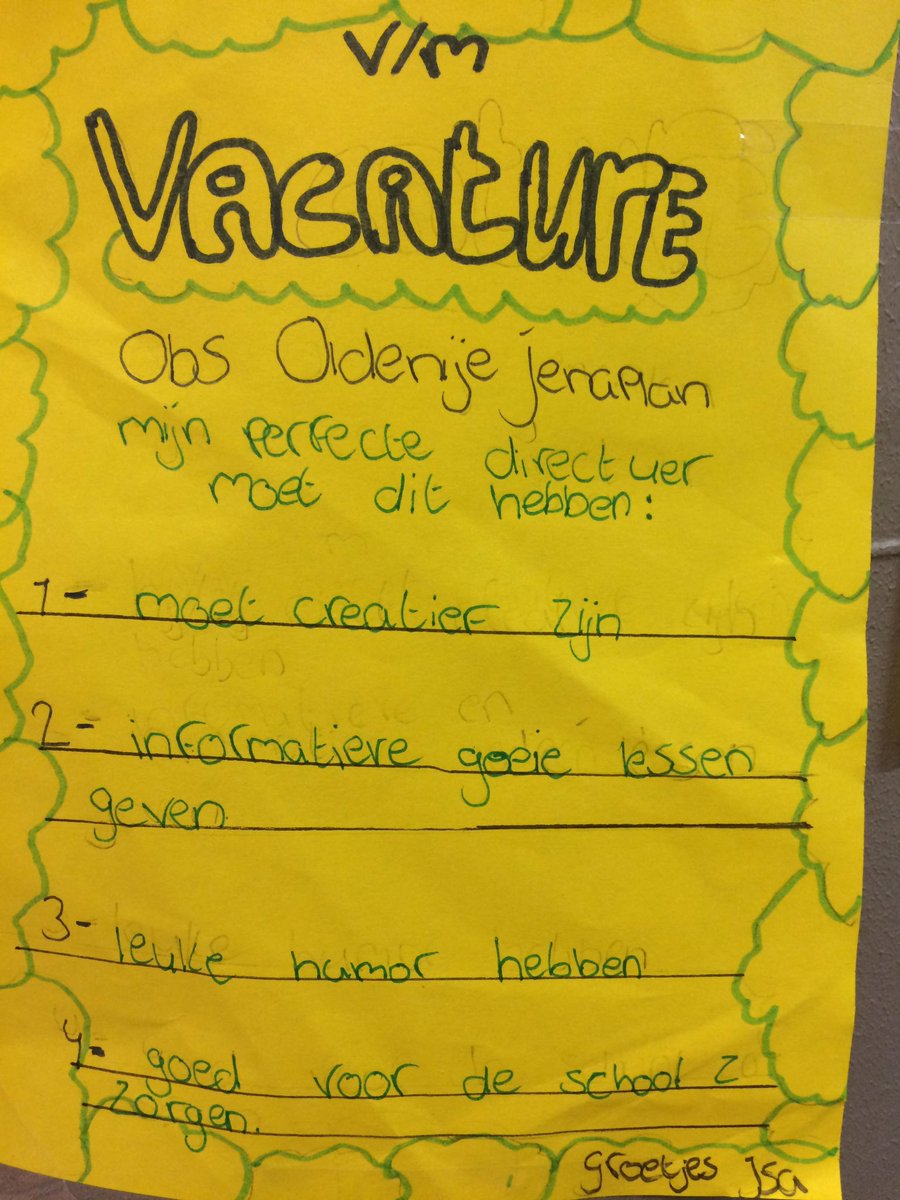 v/m
VACATURE
Obs Oldenije jenaplan
mijn perfecte directuer
moet dit hebben:
1- moet creatief zijn
2- informatieve goeie lessen
geven
3- leuke humor hebben
4- goed voor de school z
zorgen.
groetjes Isa